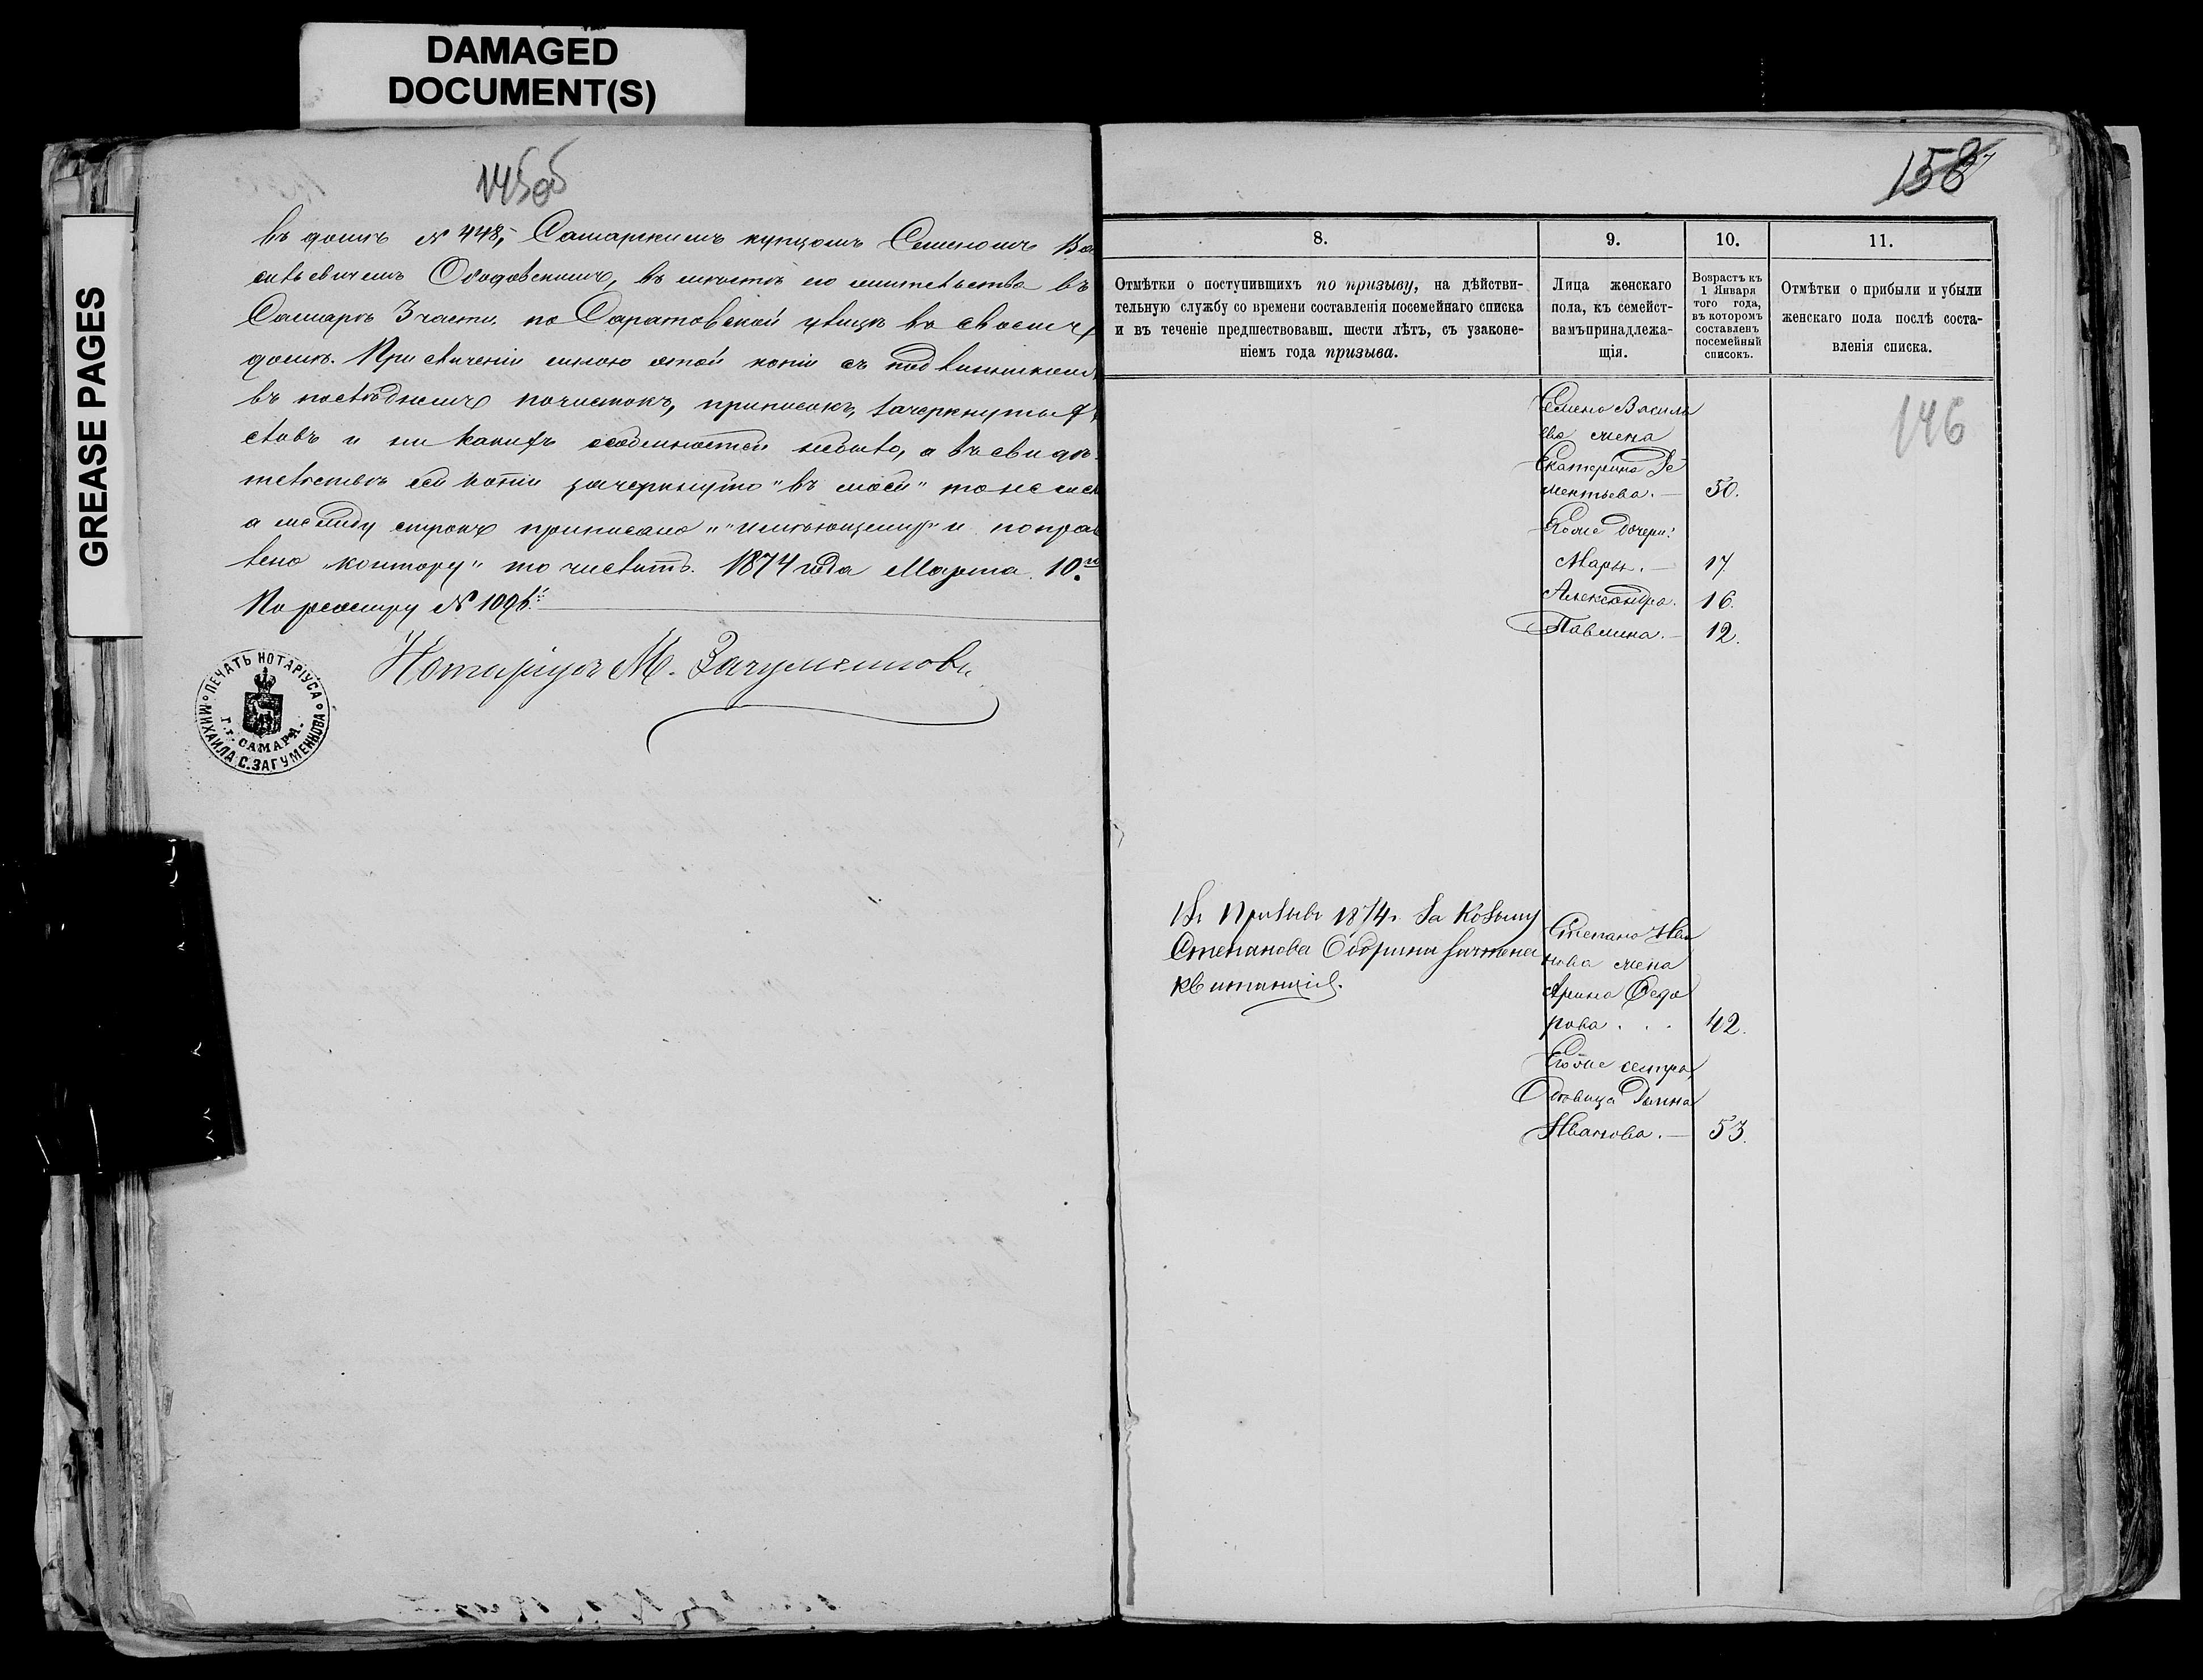 DAMAGED
DOCUMENT(S)
GREASE PAGES
145об
въ домѣ № 448, Самарскимъ купцомъ Семеномъ Ва
сильевичемъ Ободовскимъ, въ мѣстѣ его жительства въ
Самарѣ 3 части, по Саратовской улицѣ въ своемъ
домѣ. При сличеніи мною этой копіи съ подлинникомъ
въ послѣднемъ почистокъ, приписокъ, зачеркнутыхъ
словъ и ни какихъ особенностей небыло, а въ свидѣ-
тельствѣ сей копіи зачеркнуто "въ моей" то не
а между строкъ приписано "имѣющему" и поправ
лено "контору" то числить. 1874 года Марта 10.
По реестру № 1096.
Нотаріусъ М. Загуменновъ
ПЕЧАТЬ НОТАРІУСА
МИХАИЛА С. ЗАГУМЕННОВА
Г. САМАРА.
158
8.
9.
10.
11.
Отмѣтки о поступившихъ по призыву, на дѣйстви-
тельную службу со времени составленія посемейнаго списка
и въ теченіе предшествовавш. шести лѣтъ, съ узаконе-
ніемъ года призыва.
Лица женскаго
пола, къ семейст-
вамъ принадлежа-
щія.
Возрастъ къ
1 Января
того года,
въ которомъ
составленъ
посемейный
списокъ.
Отмѣтки о прибыли и убыли
женскаго пола послѣ соста-
вленія списка.
146
Семена Василь
ева жена
Екатерина Де
ментьева. — 50.
Его же дочери:
Марья. — 17
Александра. 16.
Павлина. — 12.
Въ призывъ 1874 г. за Козьму
Степанова Ободрина зачтена
квитанція.
Степана Ива
нова жена
Арина Федо
рова . . . 42.
Его же сестра,
вдовица Дымна
Иванова. — 53.